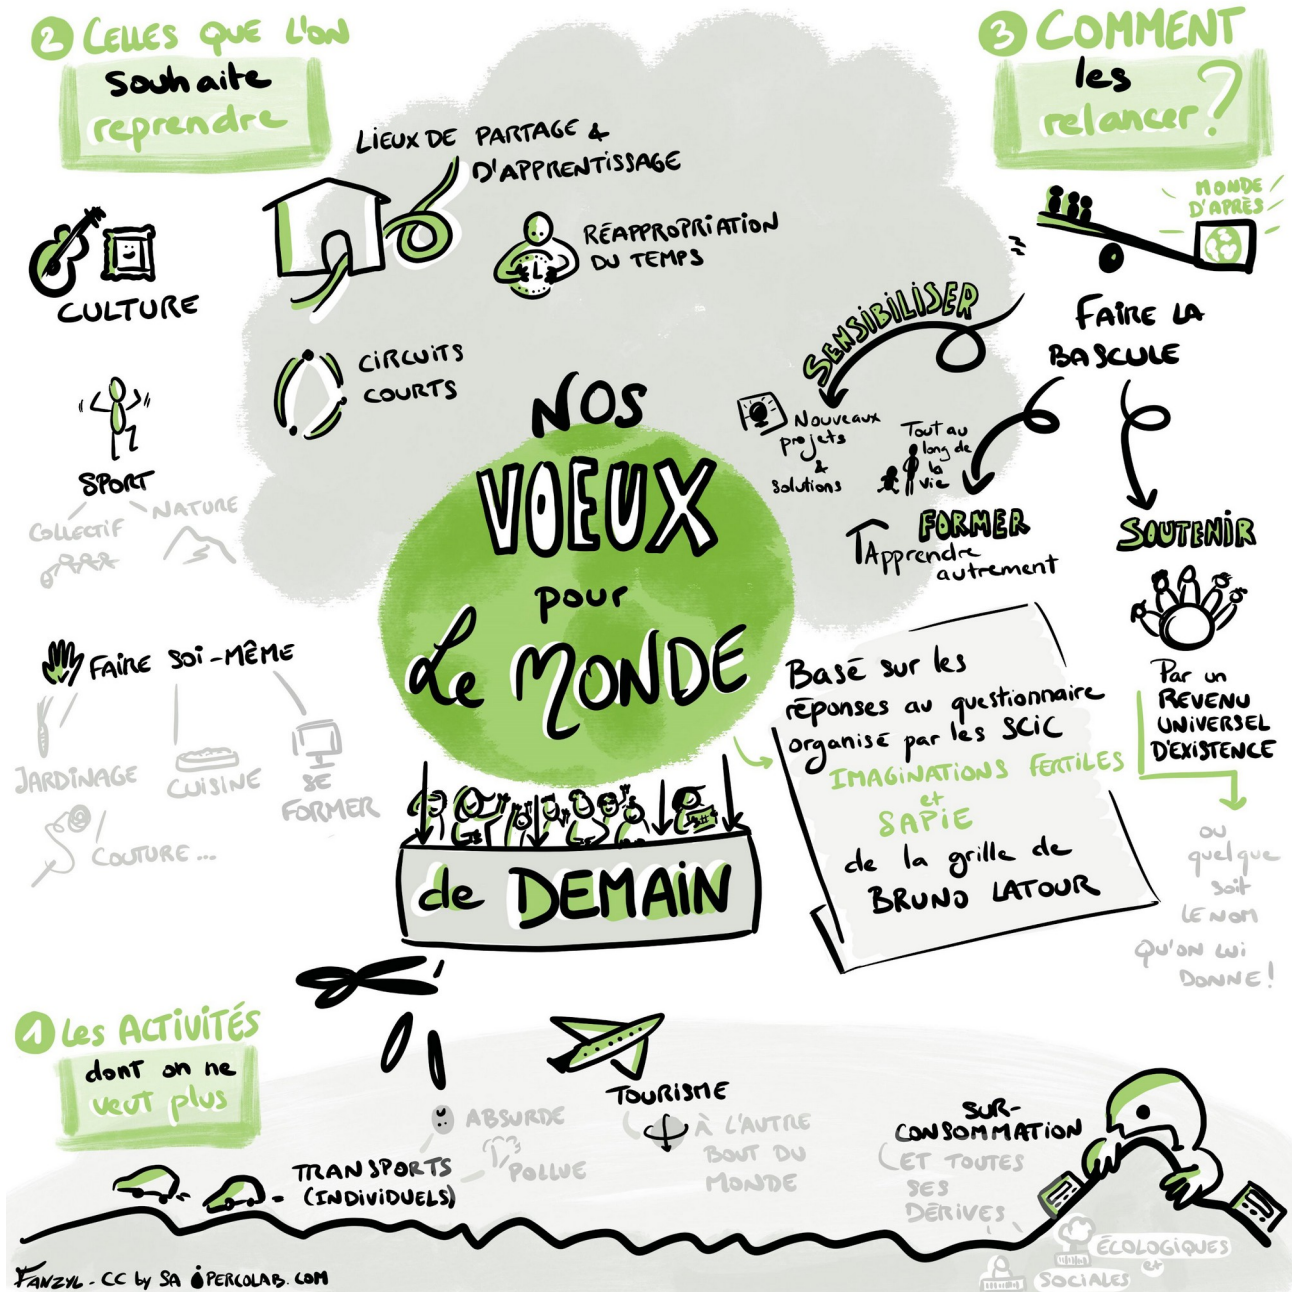 2 CELLES QUE L'ON
souhaite
reprendre
LIEUX DE PARTAGE &
D'APPRENTISSAGE
RÉAPPROPRIATION
DU TEMPS
CULTURE
CIRCUITS
COURTS
SPORT
COLLECTIF
NATURE
FAIRE SOI-MÊME
JARDINAGE
CUISINE
SE
FORMER
COUTURE...
NOS
VOEUX
pour
Le MONDE
de DEMAIN
3 COMMENT
les
relancer ?
MONDE
D'APRÈS
FAIRE LA
BASCULE
SENSIBILISER
Nouveaux
projets
&
solutions
Tout au
long de
la
vie
FORMER
Apprendre
autrement
SOUTENIR
Par un
REVENU
UNIVERSEL
D'EXISTENCE
ou
quelque
soit
LE NOM
QU'ON LUI
DONNE !
Basé sur les
réponses au questionnaire
organisé par les SCIC
IMAGINATIONS FERTILES
et
SAPIE
de la grille de
BRUNO LATOUR
1 Les ACTIVITÉS
dont on ne
veut plus
TRANSPORTS
(INDIVIDUELS)
ABSURDE
POLLUE
TOURISME
À L'AUTRE
BOUT DU
MONDE
SUR-
CONSOMMATION
ET TOUTES
SES
DÉRIVES
ÉCOLOGIQUES
et
SOCIALES
FANZYL - CC by SA PERCOLAB.COM